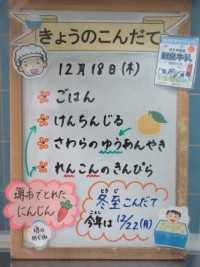 きょうのこんだて
12月18日(木)
ごはん
けんちんじる
さわらのゆうあんやき
れんこんのきんぴら
調布でとれた
にんじん
畑の
めぐみ
とうじ
冬至こんだて
ことし
今年は12/22(月)